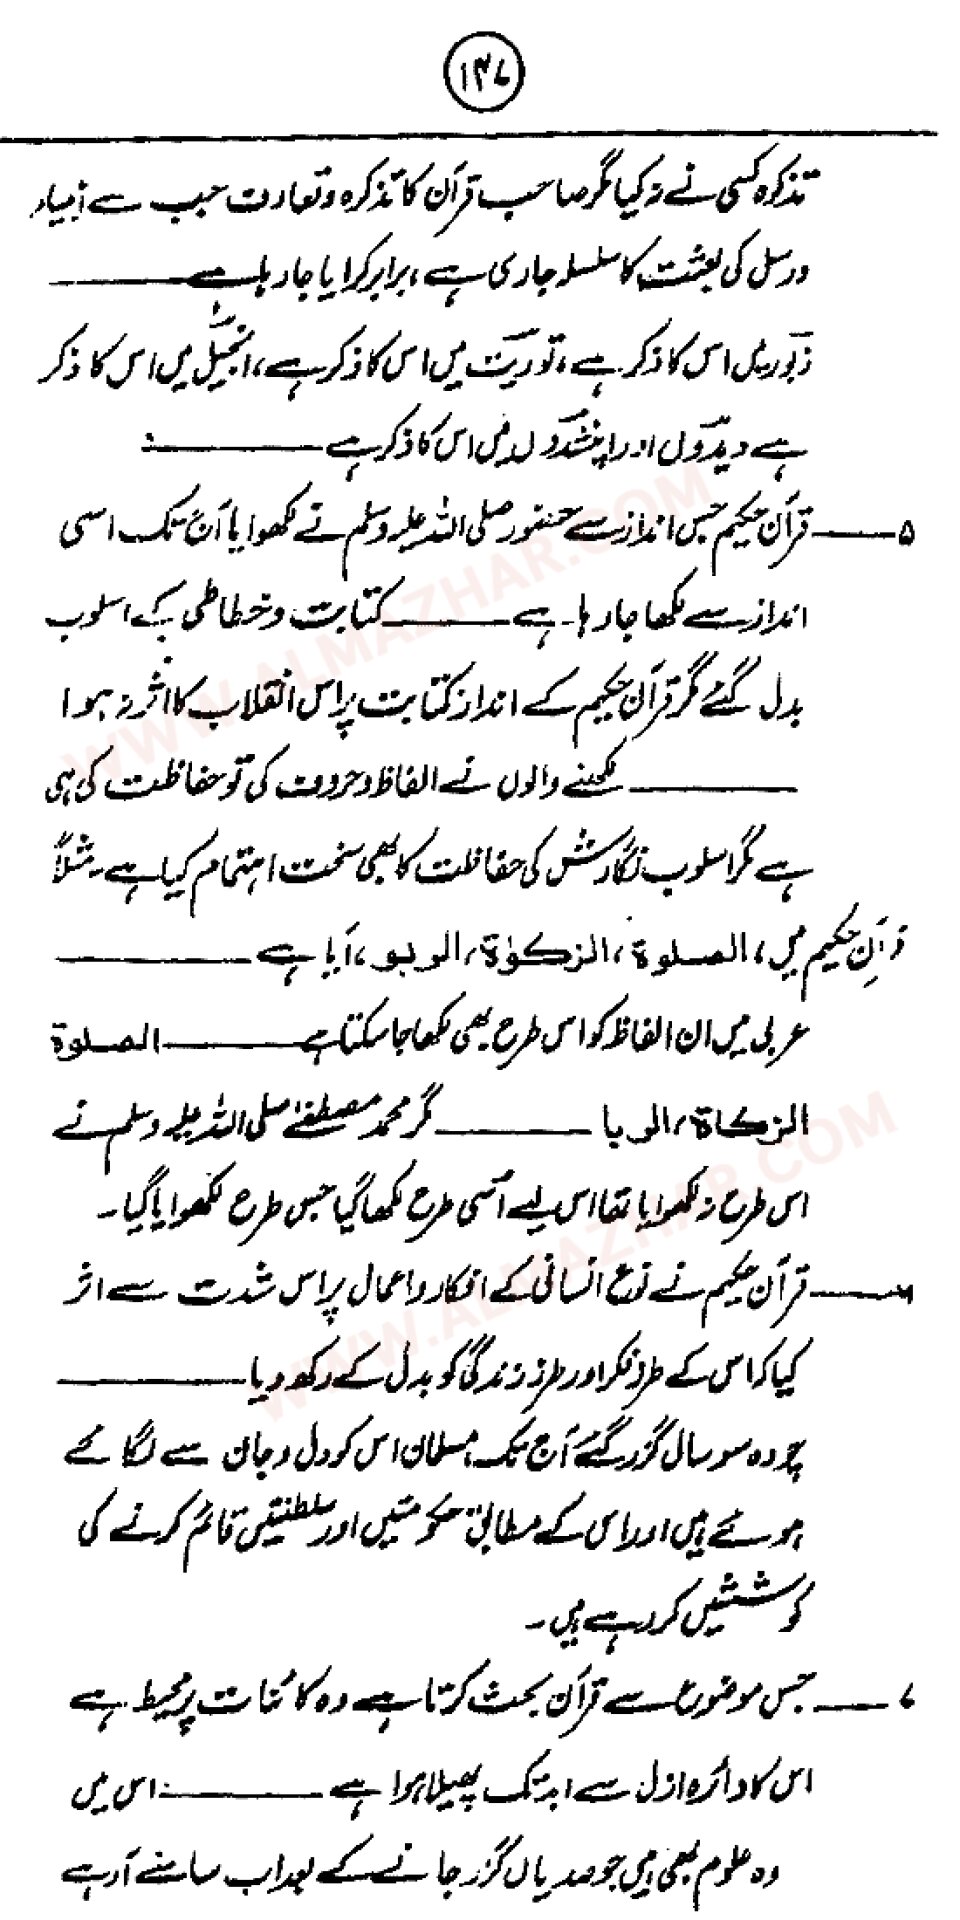 ۱۴۷
تذکرہ کسی نے نہ کیا مگر صاحبِ قرآن کا تذکرہ و تعارف جب سے انبیاء
ورسل کی بعثت کا سلسلہ جاری ہے، برابر کرایا جا رہا ہے ———
زبور میں اس کا ذکر ہے، توریت میں اس کا ذکر ہے، انجیل میں اس کا ذکر
ہے ویدوں اور اپنشدوں میں اس کا ذکر ہے ———:
۵ —— قرآن حکیم جس انداز سے حضور صلی اللہ علیہ وسلم نے لکھوایا آج تک اسی
انداز سے لکھا جا رہا ہے ——— کتابت و خطاطی کے اسلوب
بدل گئے مگر قرآن حکیم کے انداز کتابت پر اس انقلاب کا اثر نہ ہوا
——— لکھنے والوں نے الفاظ و حروف کی تو حفاظت کی ہی
ہے مگر اسلوب نگارش کی حفاظت کا بھی سخت اہتمام کیا ہے۔ مثلاً
قرآنِ حکیم میں، الصلوة، الزكوٰة، الربو، آیا ہے ———
عربی میں ان الفاظ کو اس طرح بھی لکھا جا سکتا ہے ——— الصلوة
الزكاة، الربا ——— مگر محمد مصطفےٰ صلی اللہ علیہ وسلم نے
اس طرح نہ لکھوایا تھا اس لیے اُسی طرح لکھا گیا جس طرح لکھوایا گیا۔
۶ —— قرآن حکیم نے نوع انسانی کے افکار و اعمال پر اس شدت سے اثر
کیا کہ اس کے طرز فکر اور طرز زندگی کو بدل کے رکھ دیا ———
چودہ سو سال گزر گئے آج تک مسلمان اس کو دل و جان سے لگائے
ہوئے ہیں اور اس کے مطابق حکومتیں اور سلطنتیں قائم کرنے کی
کوششیں کر رہے ہیں۔
۷ —— جس موضوع سے قرآن بحث کرتا ہے وہ کائنات پر محیط ہے
اس کا دائرہ ازل سے ابد تک پھیلا ہوا ہے ——— اس میں
وہ علوم بھی ہیں جو صدیاں گزر جانے کے بعد اب سامنے آ رہے
WWW.ALMAZHAR.COM
WWW.ALMAZHAR.COM